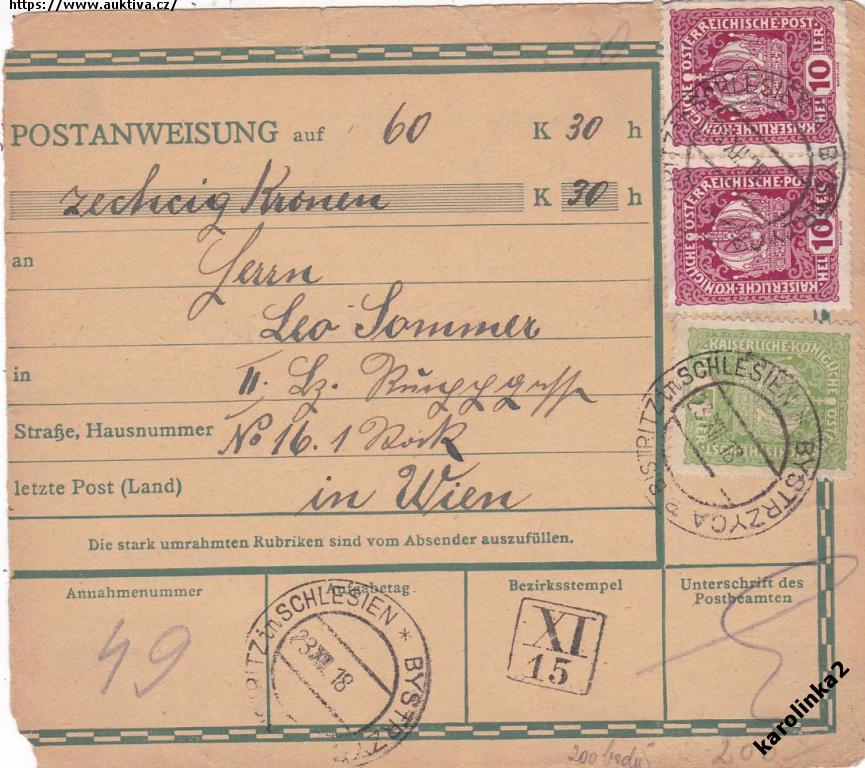 https://www.auktiva.cz/
POSTANWEISUNG auf 60 K 30 h
zechzig Kronen K 30 h
an Herrn
Leo Sommer
in II. Bz.
Straße, Hausnummer No 16. 1 Stock
letzte Post (Land) in Wien
Die stark umrahmten Rubriken sind vom Absender auszufüllen.
KAISERLICHE·KÖNIGLICHE ÖSTERREICHISCHE·POST·
10 HELLER 10
KAISERLICHE·KÖNIGLICHE ÖSTERREICHISCHE·POST·
10 HEL
KAISERLICHE·KÖNIGLICHE
BISTRITZ in SCHLESIEN * BYSTRZYCA
BISTRITZ in SCHLESIEN * BYSTRZYCA
23 XII 18
Annahmenummer
49
Aufgabetag
BISTRITZ in SCHLESIEN * BYSTRZY
23 XII 18
Bezirksstempel
XI
15
Unterschrift des
Postbeamten
200 body
200
karolinka2